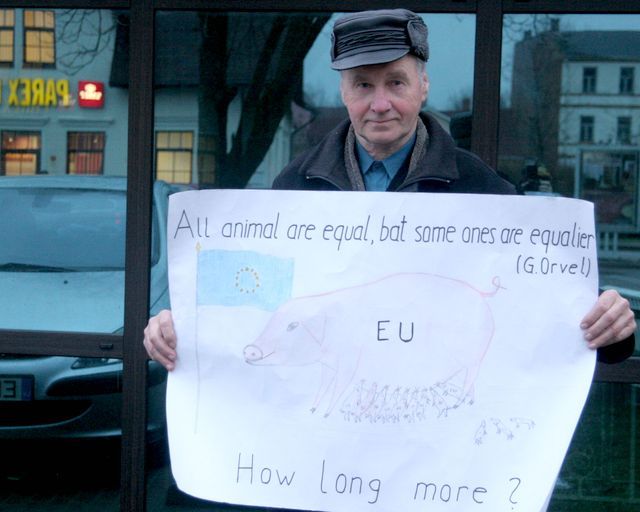 PAREX
All animal are equal, bat some ones are equalier
(G.Orvel)
EU
How long more ?